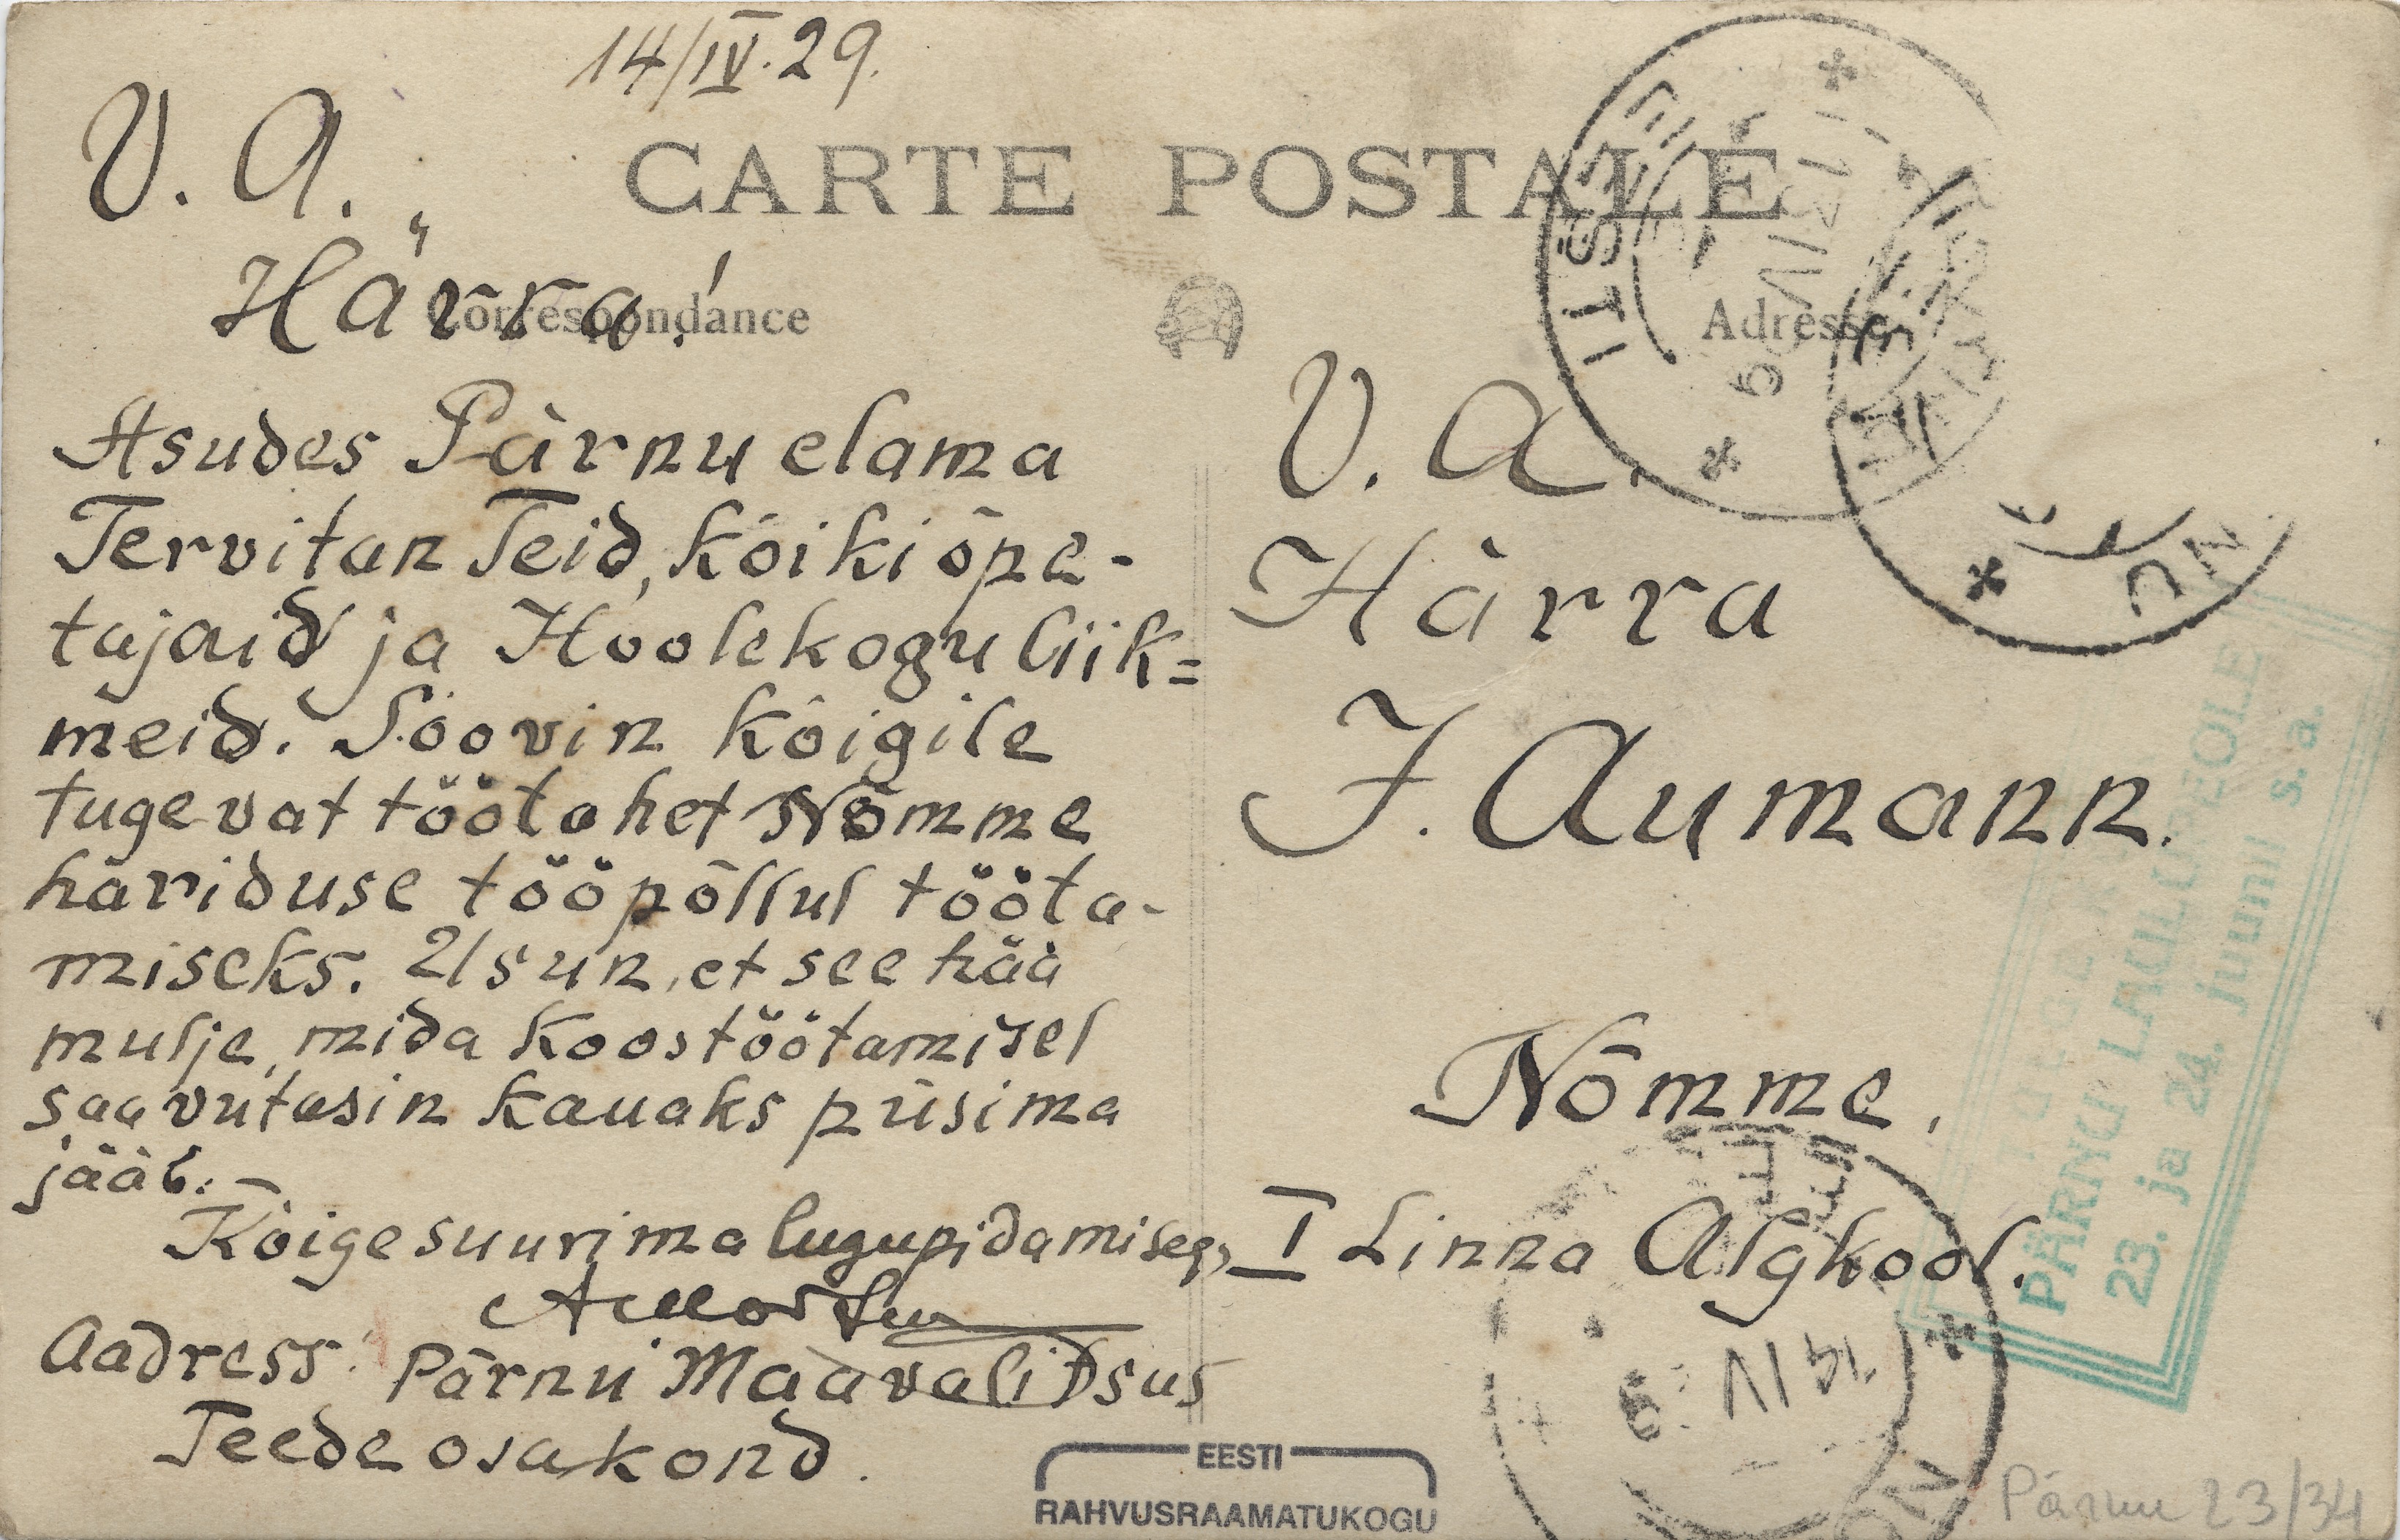 14/IV.29.
V. A.
Härra!
CARTE POSTALE
Correspondance
Adresse
Asudes Pärnu elama
Tervitan Teid, kõiki õpe-
tajaid ja Hoolekogu liik=
meid. Soovin kõigile
tugevat töötahet Nõmme
hariduse tööpõllul tööta-
miseks. Usun, et see hää
mulje, mida koostöötamisel
saavutasin kauaks püsima
jääb.
Kõige suurima lugupidamisega
Aadress: Pärnu Maavalitsus
Teede osakond.
V. A.
Härra
J. Aumann.
Nõmme,
I Linna Algkool.
PÄRNU LAULUPEOLE
23. ja 24. juunil s. a.
EESTI
14 IV 29
EESTI
RAHVUSRAAMATUKOGU
Pärnu 23/34